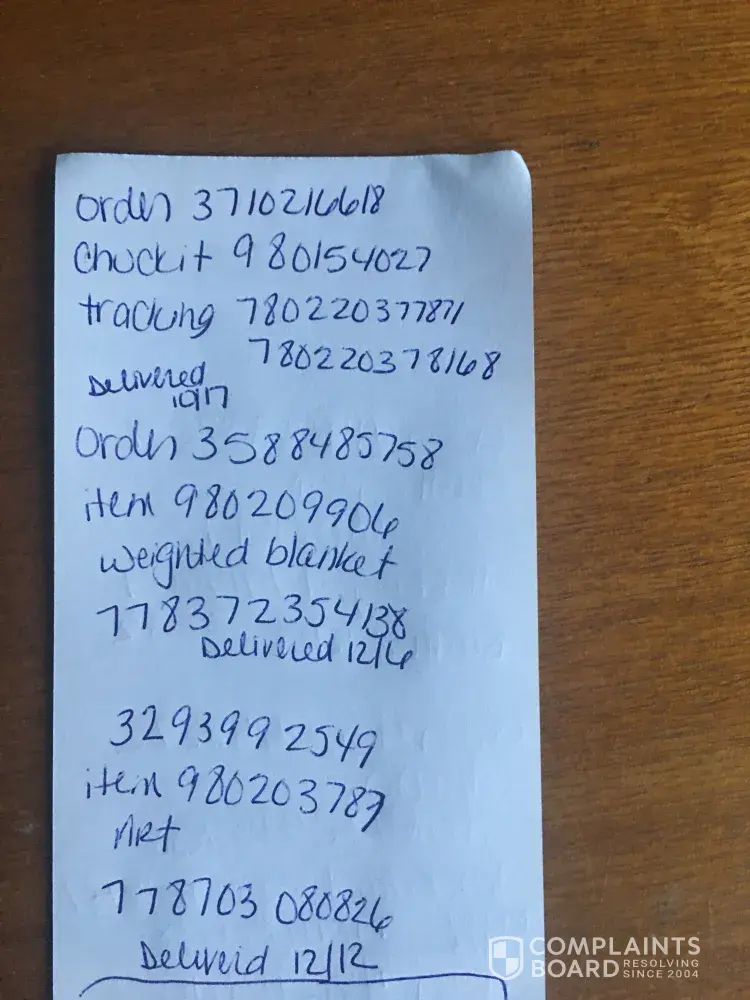 Order 3710216618
Chuckit 980154027
tracking 780220377871
780220378168
Delivered
10/17
Order 3588485758
item 980209906
weighted blanket
778372354138
Delivered 12/6
3293992549
item 980203787
Art
778703 080826
Deliverid 12/12
COMPLAINTS
BOARD RESOLVING
SINCE 2004